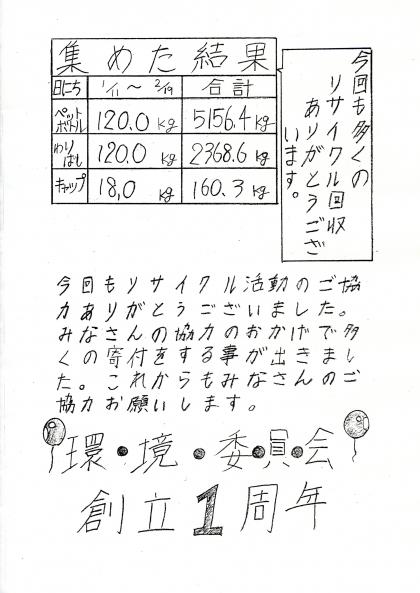 集めた結果
日にち 1/11～2/19 合計
ペットボトル 120.0kg 5156.4kg
わりばし 120.0kg 2368.6kg
キャップ 18.0kg 160.3kg
今回も多くの
リサイクル回収
ありがとうござ
います。
今回もリサイクル活動のご協
力ありがとうございました。
みなさんの協力のおかげで多
くの寄付をする事が出きまし
た。これからもみなさんのご
協力お願いします。
環・境・委・員・会
創立1周年